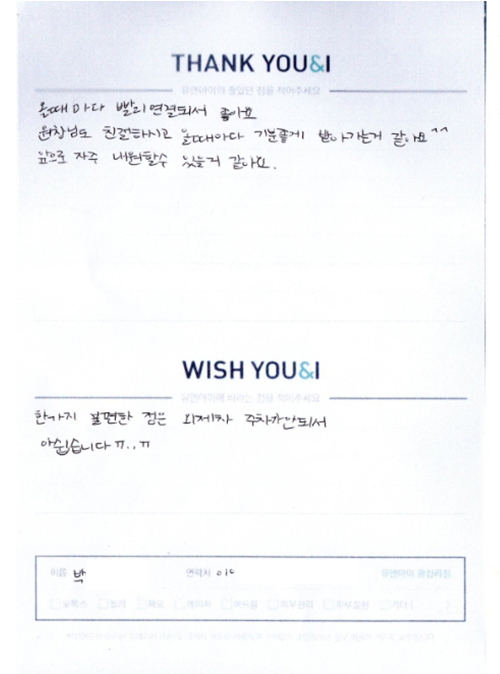 THANK YOU&I
유앤아이의 좋았던 점을 적어주세요
올때마다 빨리연결되서 좋아요
원장님도 친절하시고 올때마다 기분좋게 받아가는거 같아요^^
앞으로 자주 내원할수 있을거 같아요.
WISH YOU&I
유앤아이에 바라는 점을 적어주세요
한가지 불편한 점은 외제차 주차가안되서
아쉽습니다 ㅠ..ㅠ
이름 박 연락처 010 유앤아이
보톡스 필러 제모 레이저 여드름 피부관리 기타 (